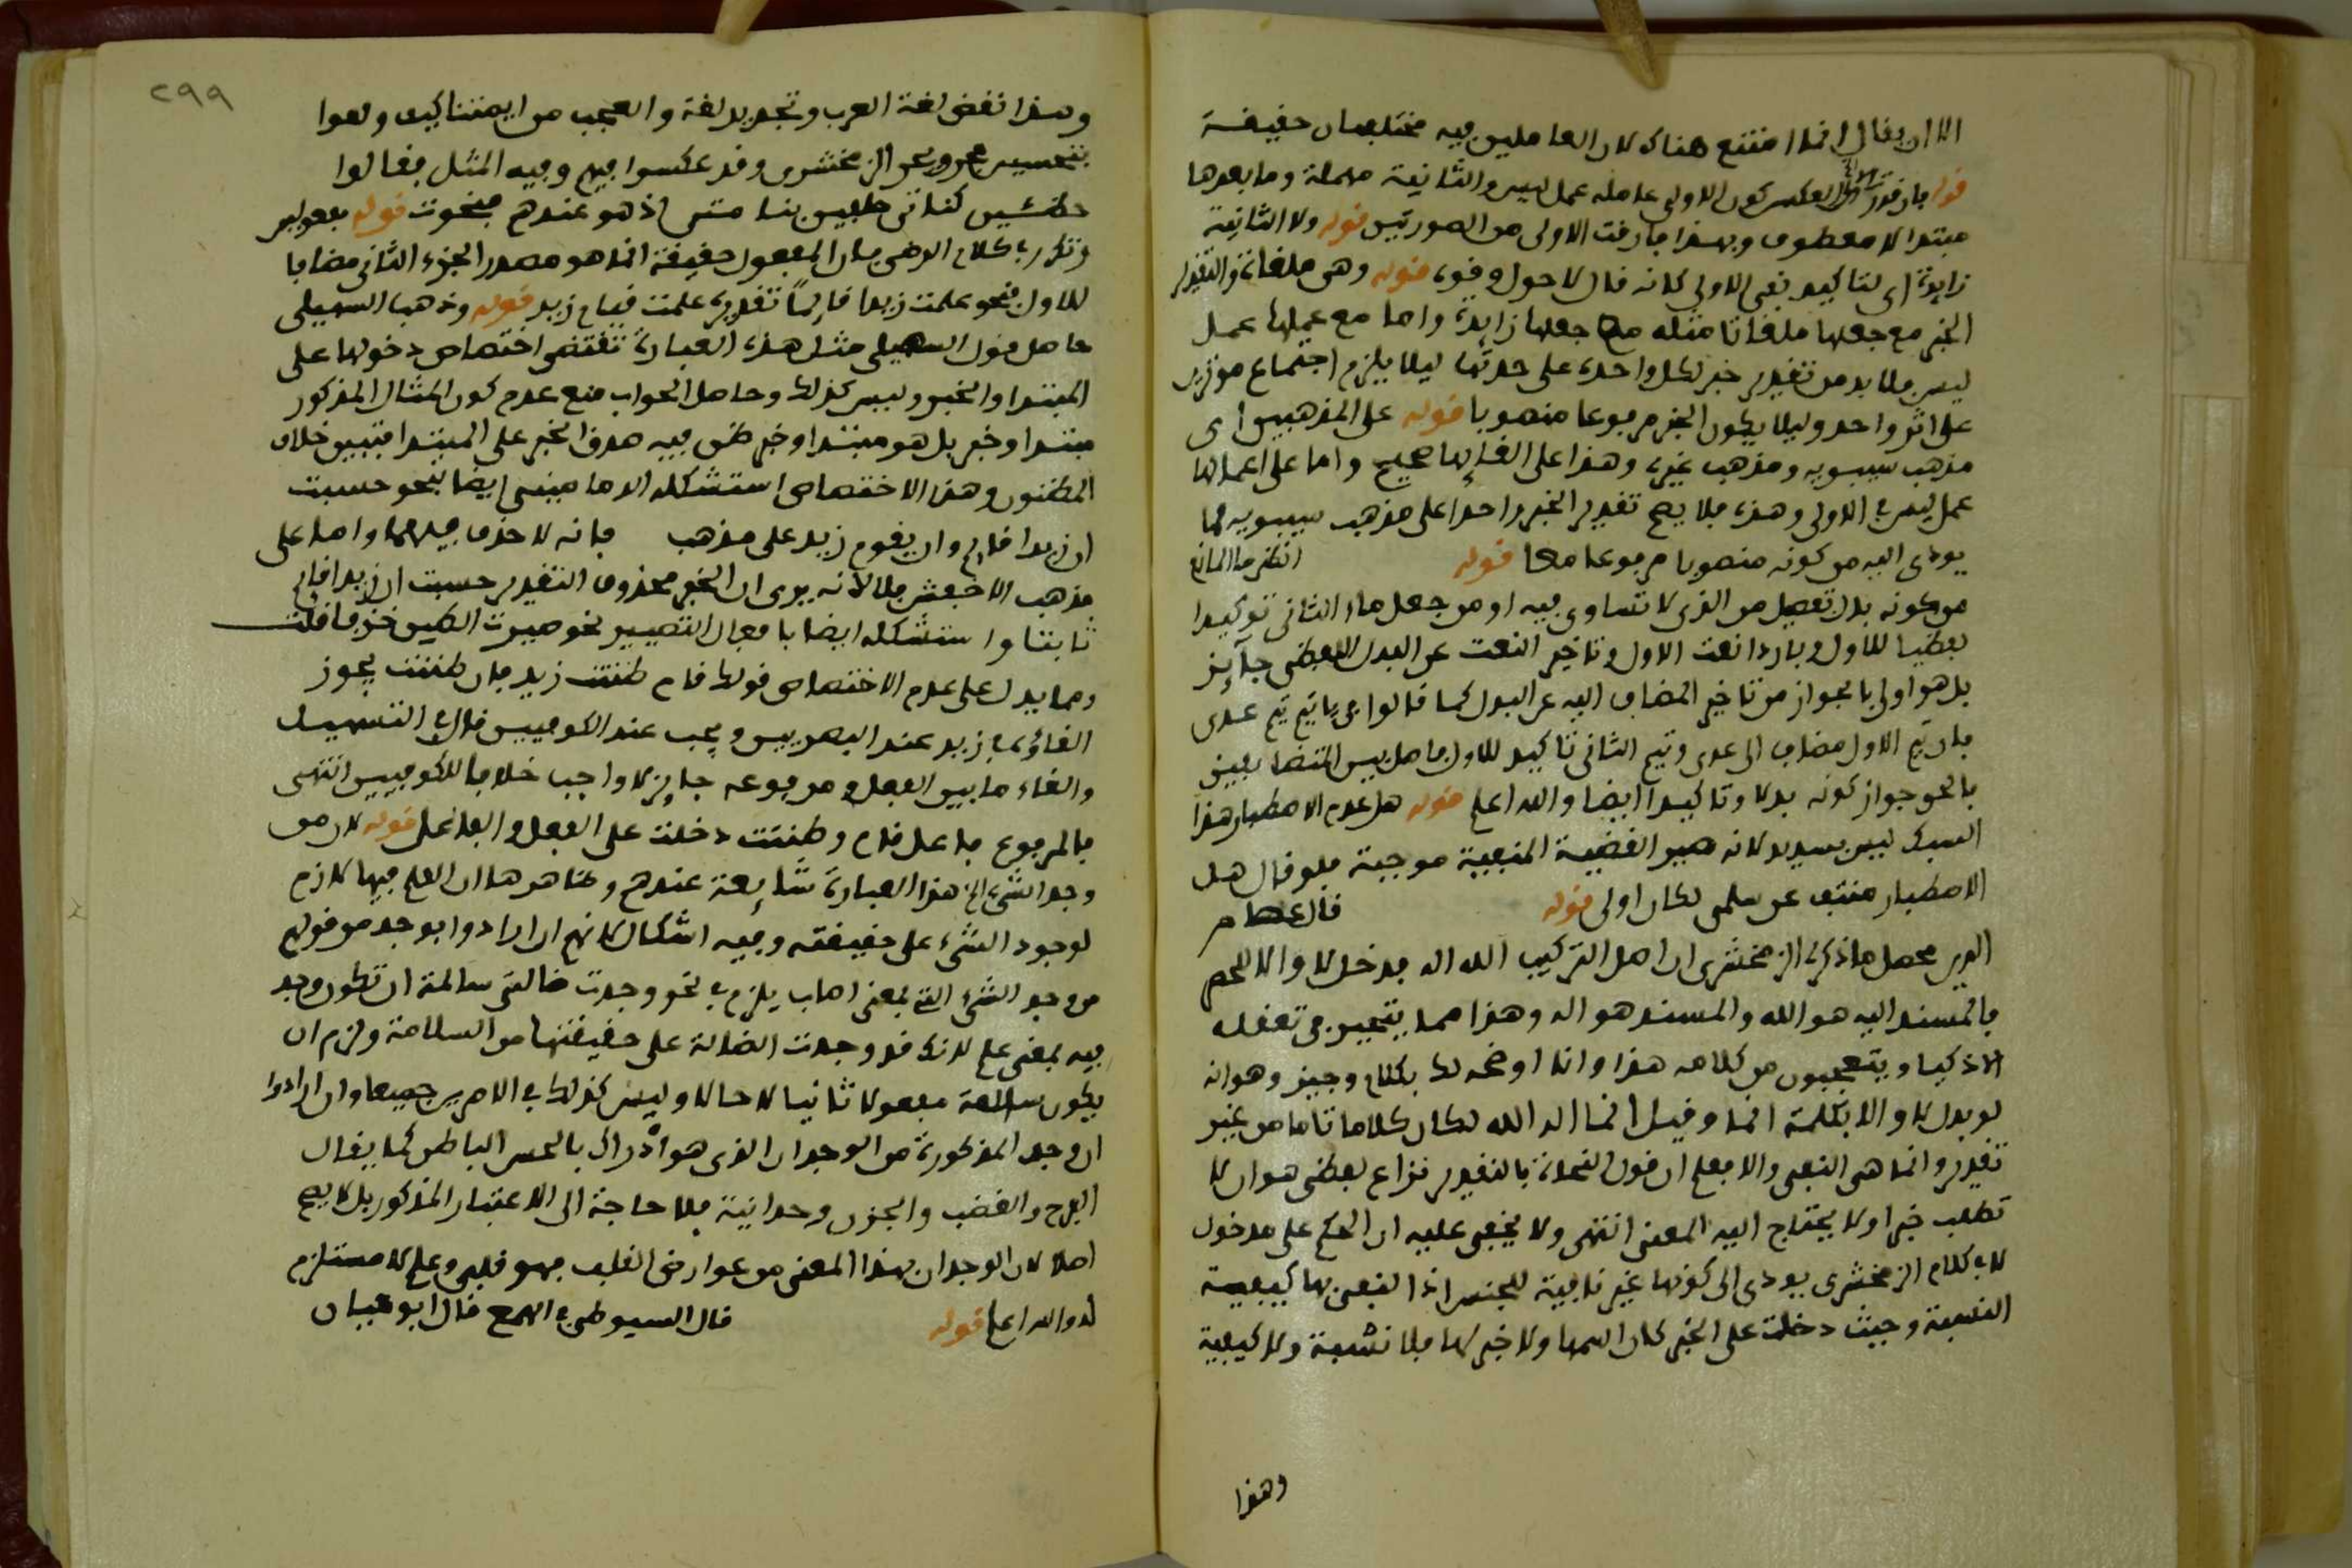 الا ان يقال انما امتنع هناك لان العاملين فيه مختلفان حقيقة
قوله فان قدرت العكس كون الاولى عاملة عمل ليس والثانية مهملة وما بعدها
مبتدا لا معطوف وبهذا فارقت الاولى من الصورتين قوله ولا الثانية
زايدة اى لتاكيد نفى الاولى كانه قال لا حول وقوة قوله وهى ملغاة والتقدير
الخبر مع جعلها ملغاتا مثله مع جعلها زايدة واما مع عملها عمل
ليس فلا بد من تقدير خبر لكل واحدة على حدتها ليلا يلزم اجتماع موثرين
على اثر واحد وليلا يكون الخبر مرفوعا منصوبا قوله على المذهبين اى
مذهب سيبويه ومذهب غيره وهذا على الغايها صحيح واما على اعمالها
عمل ليس فى الاولى وهذه فلا يصح تقدير الخبر واحدا على مذهب سيبويه لما
يودى اليه من كونه منصوبا مرفوعا معا قوله انظر ما المانع
من كونه بدل تفصيل من الذى لا تساوى فيه او من جعل ماء الثانى توكيدا
لفظيا للاول وباردا نعت الاول وتاخير النعت عن البدل اللفظى جايز
بل هو اولى بالجواز من تاخير المضاف اليه عن البدل كما قالوا فى يا تيم تيم عدى
فان تيم الاول مضاف الى عدى وتيم الثانى تاكيد للاول فاصل بين المتضايفين
فالحق جواز كونه بدلا وتاكيدا ايضا والله اعلم قوله هل عدم الاصطبار هذا
السبك ليس بسديد لانه صير القضية المنفية موجبة فلو قال هل
الاصطبار منتف عن سلمى لكان اولى قوله قال عصام
الدين محصل ما ذكره الزمخشرى ان اصل التركيب الله اله فدخل لا والا للحصر
فالمسند اليه هو الله والمسند هو اله وهذا مما يتحير فى تعقله
الاذكيا ويتعجبون من كلامه هذا وانا اوضحه لك بكلام وجيز وهو انه
لو بدل لا والا بكلمة انما وقيل انما اله الله لكان كلاما تاما من غير
تقدير وانما هى النفى والا فعلم ان قول النحاة بالتقدير نزاع لفظى هو ان لا
تطلب خبرا ولا يحتاج اليه المعنى انتهى ولا يخفى عليه ان الحكم على مدخول
لا فى كلام الزمخشرى يودى الى كونها غير نافية للجنس اذا النفى بها كيفية
النسبة وحيث دخلت على الخبر كان اسمها ولا خبر لها فلا نسبة ولا كيفية
وهذا
٢٩٩
وهذا نقض لغة العرب وتجديد لغة والعجب من ايمتنا كيف ولعوا
بتحسير بحر الزمخشرى وقد عكسوا فيهم وفيه المثل فقالوا
مبحوت قوله بعد ليس
وتكرر فى كلام الرضى فان المفعول حقيقة انما هو مصدر الجزء الثانى مضافا
للاول فنحو علمت زيدا قايما تقديره علمت قيام زيد قوله وذهب السهيلى
حاصل قول السهيلى مثل هذه العبارة تقتضى اختصاص دخولها على
المبتدا والخبر وليس كذلك وحاصل الجواب منع عدم كون المثال المذكور
مبتدا وخبر بل هو مبتدا وخبر ظن فيه صدق الخبر على المبتدا فتبين خلاف
المظنون وهذا الاختصاص استشكله الدمامينى ايضا بنحو حسبت
ان زيدا قايم وان يقوم زيد على مذهب فانه لا حذف فيهما واما على
مذهب الاخفش فلا لانه يرى ان الخبر محذوف التقدير حسبت ان زيدا قايم
ثابتا واستشكله ايضا بافعال التصيير نحو صيرت الطين خزفا قلت
ومما يدل على عدم الاختصاص قولك قام ظننت زيد فان ظننت يجوز
الغاؤها فى زيد عند البصريين ويجب عند الكوفيين قال فى التسهيل
والغاء ما بين الفعل ومرفوعه جايز لا واجب خلافا للكوفيين انتهى
فالمرفوع فاعل قام وظننت دخلت على الفعل والفاعل قوله لان من
وجد الشىء الخ هذا العبارة شايعة عندهم وظاهرها ان العلم فيها لازم
لوجود الشىء على حقيقته وفيه اشكال لانهم ان ارادوا بوجد من قولهم
من وجد الشىء التى بمعنى اصاب يلزم فى نحو وجدت ضالتى سالمة ان تكون وجد
فيه بمعنى علم لانك قد وجدت الضالة على حقيقتها من السلامة ولزم ان
يكون سالمة مفعولا ثانيا لا حالا وليس كذلك فى الامرين جميعا وان ارادوا
ان وجد المذكورة من الوجدان الذى هو ادراك بالحس الباطن كما يقال
الفرح والغضب والحزن وحدانية فلا حاجة الى الاعتبار المذكور بل لا يصح
اصلا لان الوجدان بهذا المعنى من عوارض القلب فهو قلبى وعلم لا مستلزم
له والله اعلم قوله قال السيوطى فى الهمع قال ابو حيان